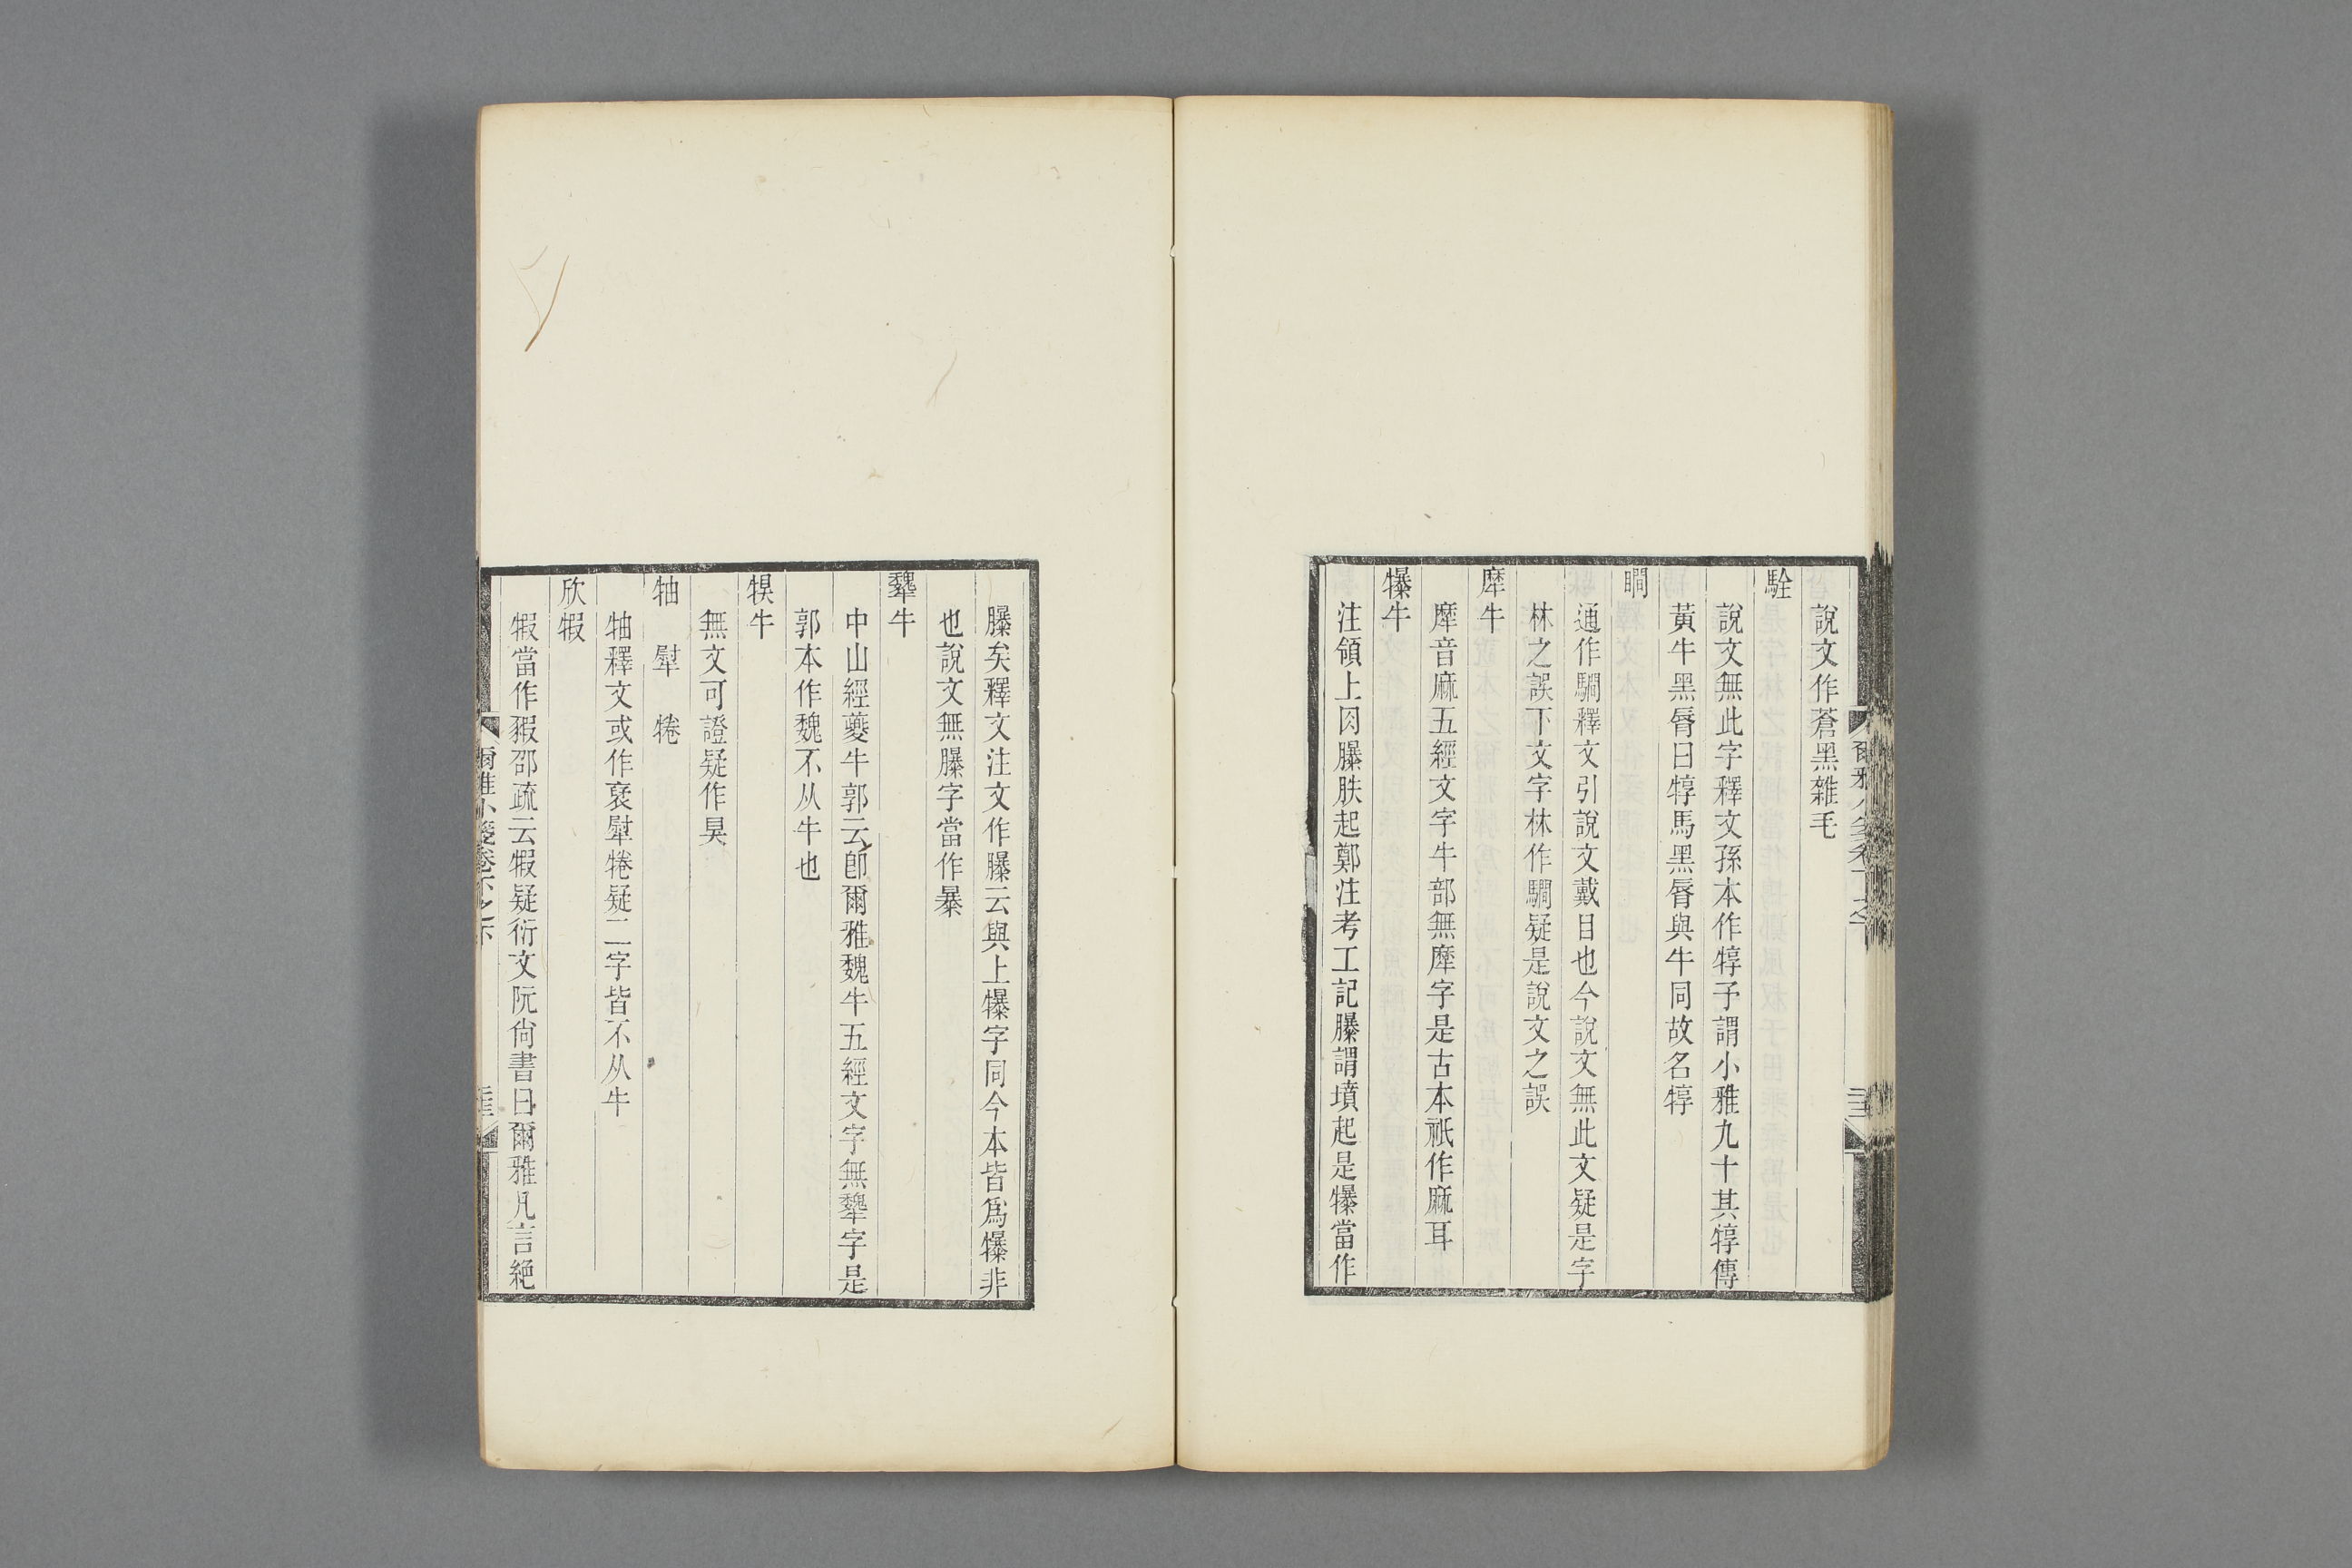 說文作蒼黑雜毛
駩
說文無此字釋文孫本作犉予謂小雅九十其犉傳
黃牛黑脣曰犉馬黑脣與牛同故名犉
瞯
通作騆釋文引說文戴目也今說文無此文疑是字
林之誤下文字林作騆疑是說文之誤
犘牛
犘音麻五經文字牛部無犘字是古本祇作麻耳
犦牛
注領上肉䑑胅起鄭注考工記䑑謂墳起是犦當作
䑑矣釋文注文作䑑云與上犦字同今本皆爲犦非
也說文無䑑字當作暴
犩牛
中山經夔牛郭云卽爾雅魏牛五經文字無犩字是
郭本作魏不从牛也
犑牛
無文可證疑作狊
牰 犚 犈
牰釋文或作褎犚犈疑二字皆不从牛
欣犌
犌當作豭邵疏云犌疑衍文阮尙書曰爾雅凡言絕
爾雅小箋卷下之下